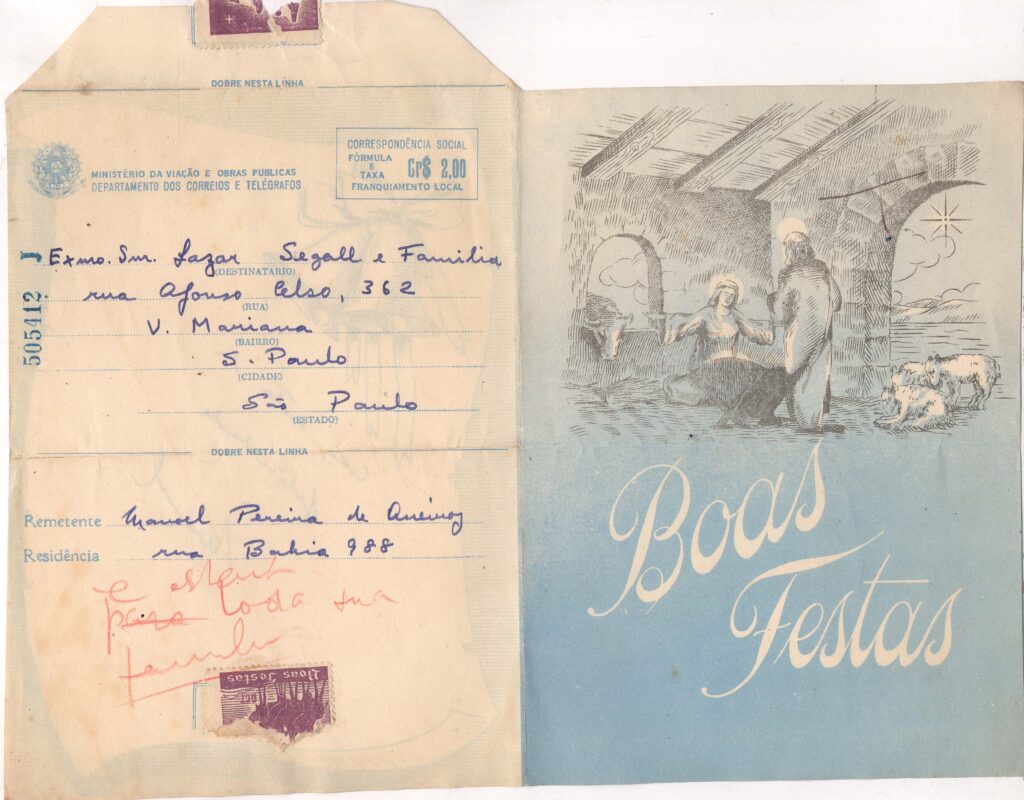 DOBRE NESTA LINHA
MINISTÉRIO DA VIAÇÃO E OBRAS PUBLICAS
DEPARTAMENTO DOS CORREIOS E TELÉGRAFOS
CORRESPONDÊNCIA SOCIAL
FÓRMULA E TAXA Cr$ 2,00
FRANQUIAMENTO LOCAL
505412 J
Exmo. Snr. Lazar Segall e Familia
(DESTINATARIO)
rua Afonso Celso, 362
(RUA)
V. Mariana
(BAIRRO)
S. Paulo
(CIDADE)
São Paulo
(ESTADO)
DOBRE NESTA LINHA
Remetente Manoel Pereira de
Residência rua Bahia 988
e
para toda sua
Boas Festas
Boas
Festas